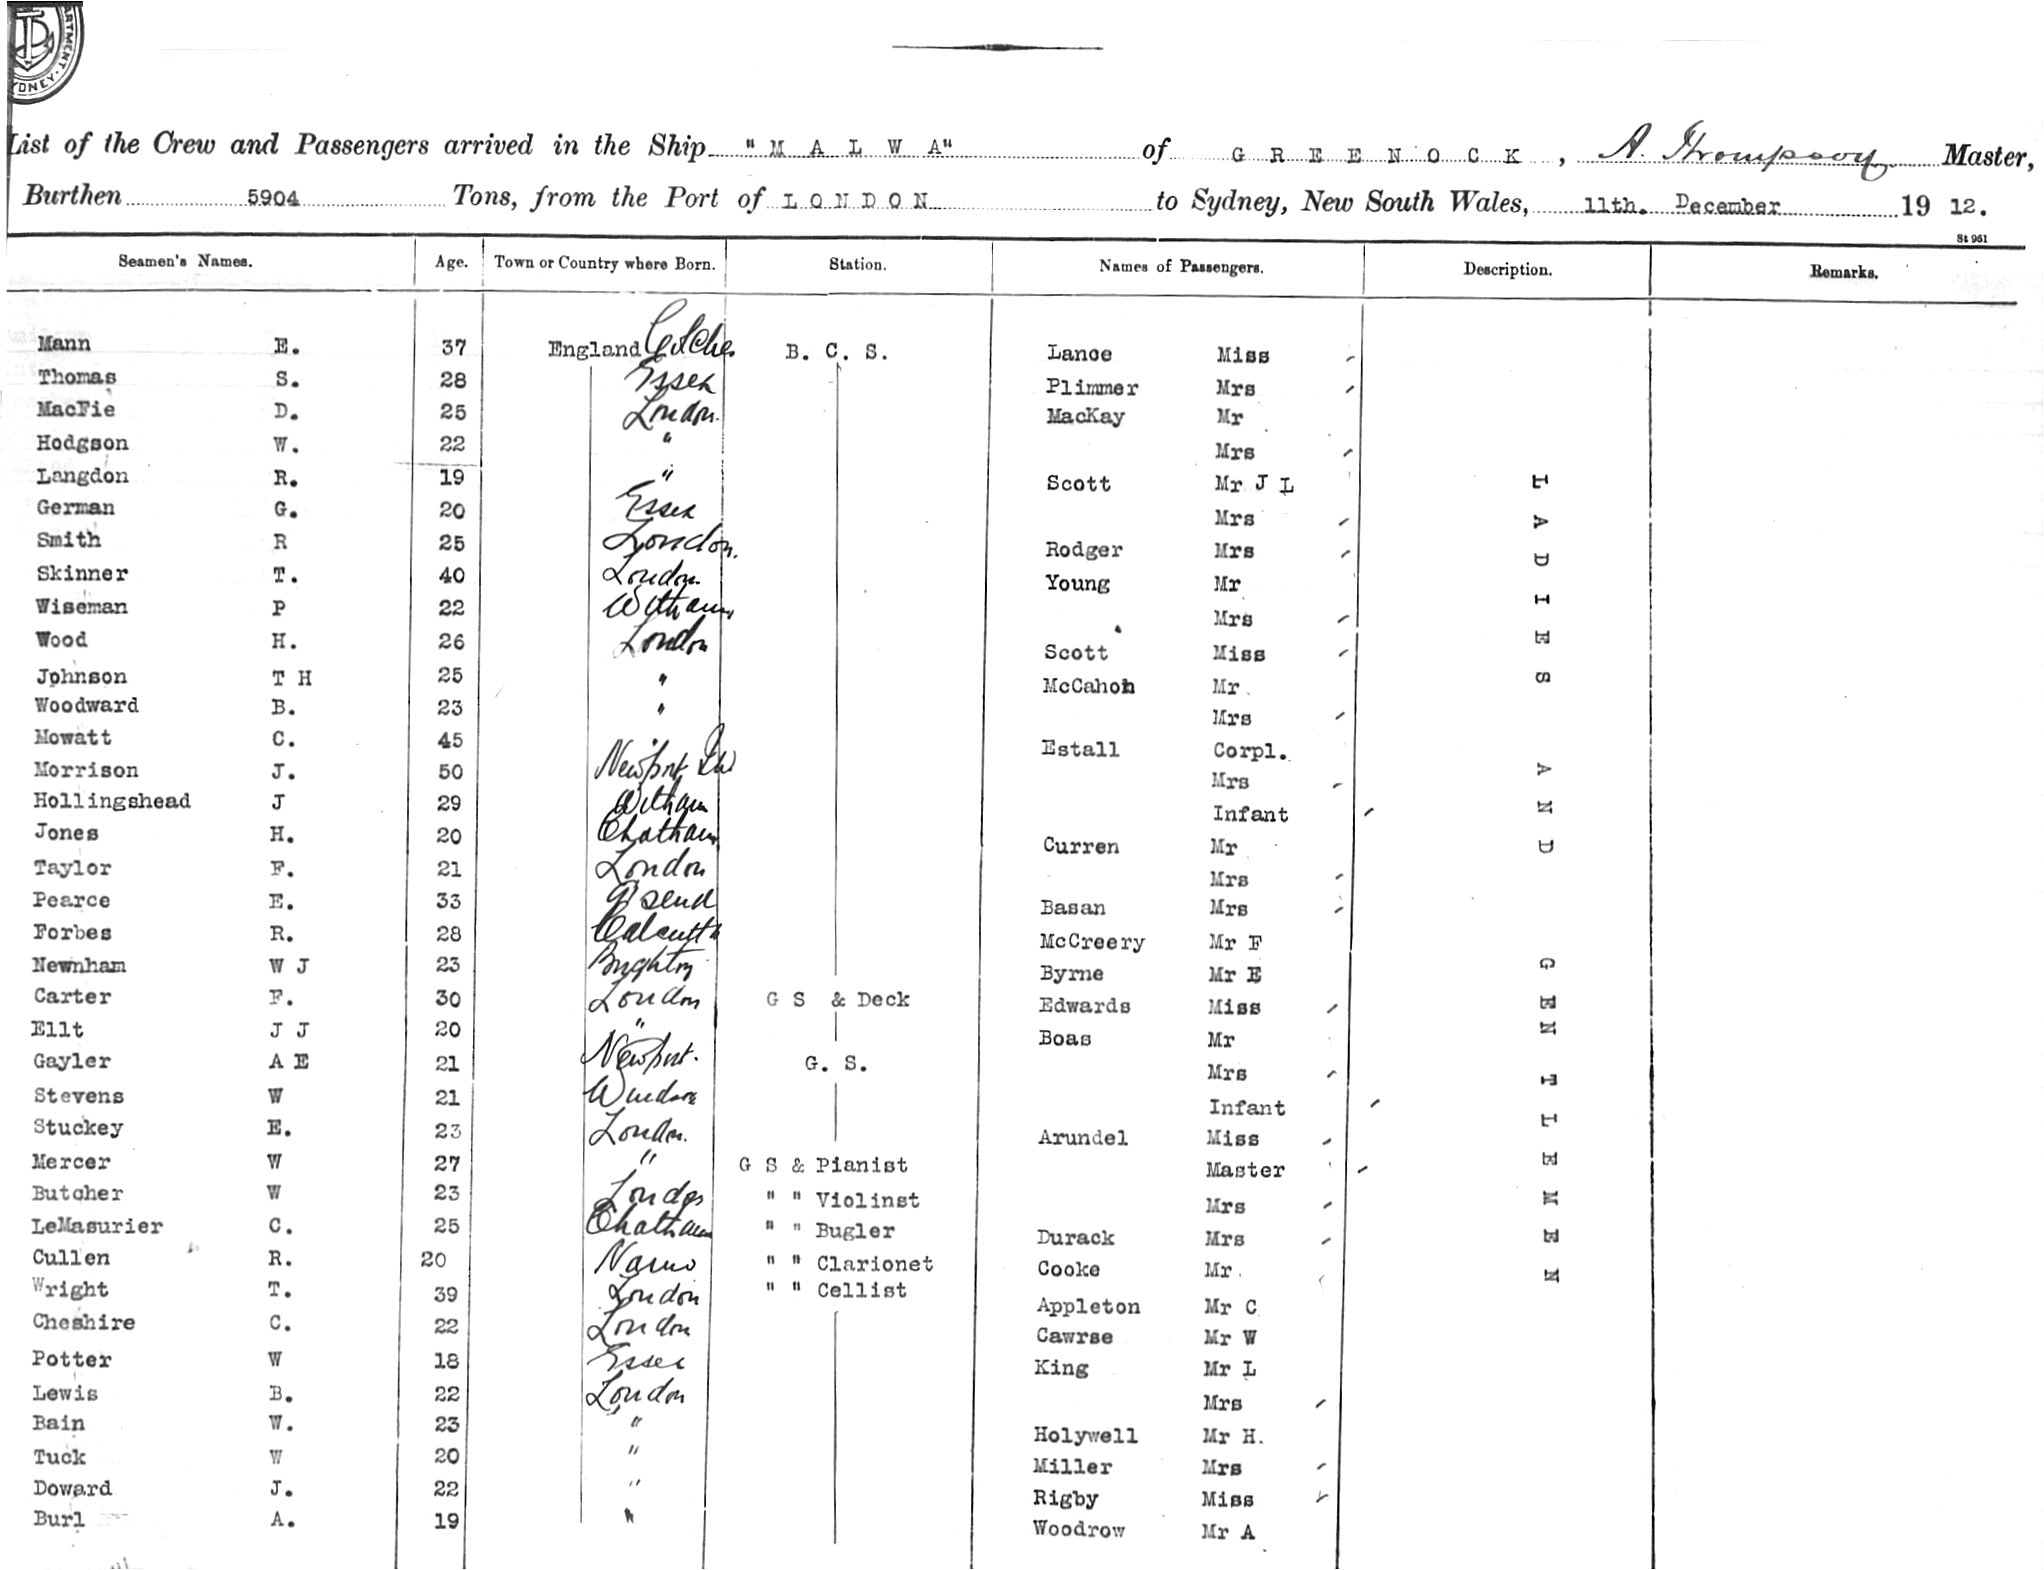 ARTMENT. SYDNEY
List of the Crew and Passengers arrived in the Ship "MALWA" of GREENOCK, A. Thompson Master,
Burthen 5904 Tons, from the Port of LONDON to Sydney, New South Wales, 11th. December 1912.
St 951
Seamen's Names. Age. Town or Country where Born. Station. Names of Passengers. Description. Remarks.
Mann E. 37 England Colches B. C. S. Lance Miss
Thomas S. 28 Essex Plimmer Mrs
MacFie D. 25 London. MacKay Mr
Hodgson W. 22 " Mrs
Langdon R. 19 " Scott Mr J L
German G. 20 Essex Mrs
Smith R 25 London. Rodger Mrs
Skinner T. 40 London. Young Mr
Wiseman P 22 Witham Mrs
Wood H. 26 London Scott Miss
Johnson T H 25 " McCahon Mr
Woodward B. 23 " Mrs
Mowatt C. 45 " Estall Corpl.
Morrison J. 50 Newport Mrs
Hollingshead J 29 Witham Infant
Jones H. 20 Chatham Curren Mr
Taylor F. 21 London Mrs
Pearce E. 33 G'send Basan Mrs
Forbes R. 28 Calcutta McCreery Mr F
Newnham W J 23 Brighton Byrne Mr E
Carter F. 30 London G S & Deck Edwards Miss
Ellt J J 20 " Boas Mr
Gayler A E 21 Newport. G. S. Mrs
Stevens W 21 Windsor Infant
Stuckey E. 23 London. Arundel Miss
Mercer W 27 " G S & Pianist Master
Butcher W 23 London " " Violinst Mrs
LeMasurier C. 25 Chatham " " Bugler Durack Mrs
Cullen R. 20 " " Clarionet Cooke Mr.
Wright T. 39 London " " Cellist Appleton Mr C
Cheshire C. 22 London Cawrse Mr W
Potter W 18 Essex King Mr L
Lewis B. 22 London Mrs
Bain W. 23 " Holywell Mr H.
Tuck W 20 " Miller Mrs
Doward J. 22 " Rigby Miss
Burl A. 19 " Woodrow Mr A
LADIES AND GENTLEMEN